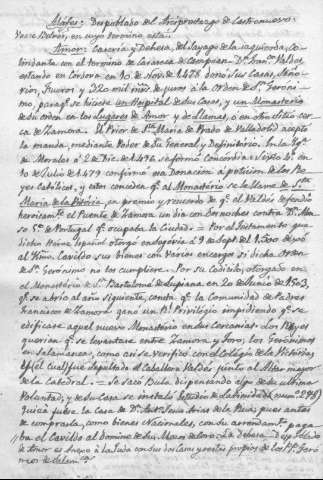 Despoblado del Arciprestazgo de Castronuevo.
en cuyo termino está:
Amor: Caseria y Dehesa, del Sayago de la izquierda, co-
lindante con el termino de Cazurra de Campean. Dn. Juan Valdes,
estando en Cordova en 10 de Novre. de 1475 donó sus Casas, Seño-
rios, Fueros y 320 mil mrs. de juros à la Orden de Sn. Geroni-
mo, para qe. se hiciese un Hospital de sus Casas, y un Monasterio
de su orden en los Lugares de Amor y de Llamas, ó en otro Sitio cer-
ca de Zamora. El Prior de Sta. Maria de Prado de Valladolid acepto
la manda, mediante Poder de su General y Definitorio. En la Ygla.
de Morales à 2 de Dic. de 1476 se formó Concordia; Sixto 4º en
10 de Julio de 1479 confirmó esa Donacion à peticion de los Re-
yes Catolicos, y estos conceden qe. al Monasterio se le llame de Sta.
Maria de la Vitoria, en premio y recuerdo de qe. el Valdes defendió
heroicamte. el Puente de Zamora un dia con dos noches contra Dn. Alon-
so 5º de Portugal qe. ocupaba la Ciudad. = Por el testamento que
dicho Heroe Español otorgó en Segovia à 9 de Sept. de 1500 dejó
al Ylmo. Cavildo sus bienes con varios encargos si dicha Orden
de Sn. Geronimo no los cumpliere. Por su Codicilo, otorgado en
el Monasterio de Sn. Bartolomé de Lupiana en 20 de Junio de 1503,
qe. se abrió al año siguiente, consta qe. la Comunidad de Padres
Franciscos de Zamora ganó un Rl. Privilegio impidiendo qe. se
edificase aquel nuevo Monasterio en sus cercanias: los Reyes
querian qe. se levantase entre Zamora y Toro; los Geronimos
en Salamanca, como asi se verificó con el Colegio de la Victoria,
en el cual fue sepultado el Caballero Valdés junto al Altar mayor
de la Catedral. — Se sacó Bula dispensando algo de su ultima
Voluntad; y de su Casa se instaló Estudio de Latinidad (num. 298)
Quizá fuera la Casa de Dn. Anto. Jesus Arias de la Peña; pues antes
de comprarla, como bienes Nacionales, con su arrendamto. paga-
ba el Cavildo al Domino de sus Mozos de Coro. La dehesa, despoblado
de Amor es Anexo à la Tuda con sus dos Casas y restos propios de los Ps. Geró-
nimos de Salama.